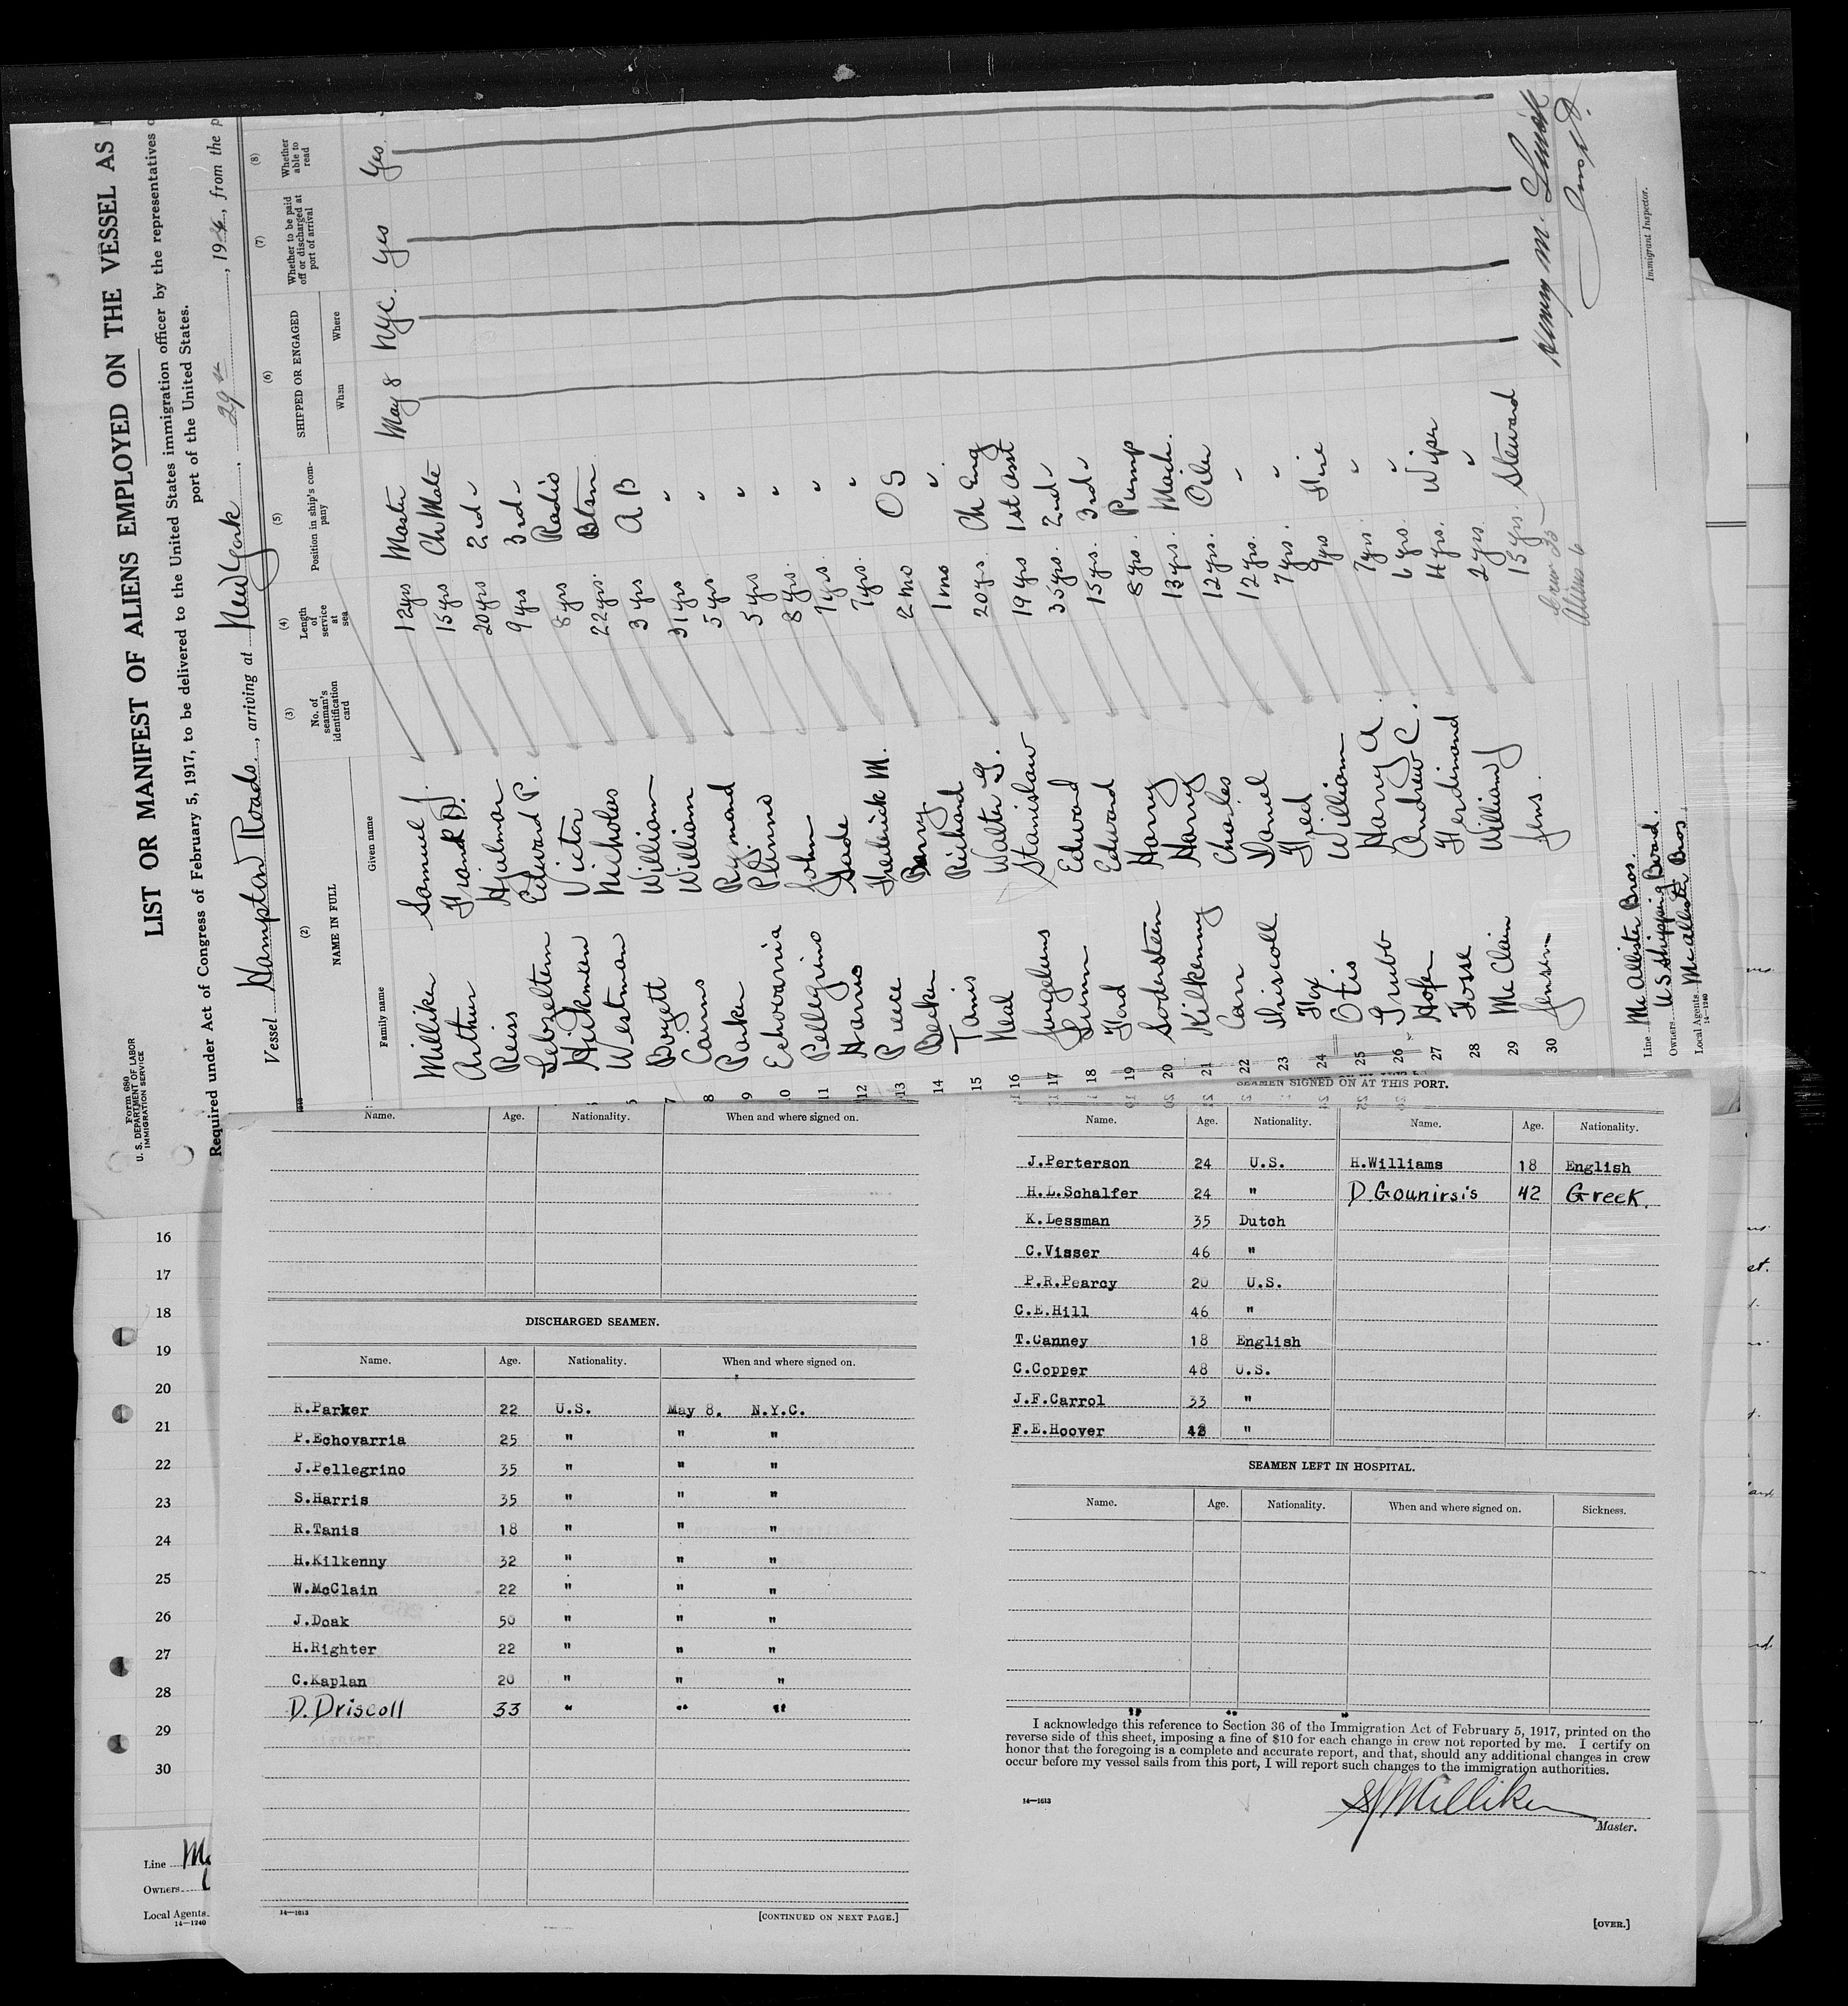 Form 680
U. S. DEPARTMENT OF LABOR
IMMIGRATION SERVICE
LIST OR MANIFEST OF ALIENS EMPLOYED ON THE VESSEL AS
Required under Act of Congress of February 5, 1917, to be delivered to the United States immigration officer by the representatives
port of the United States.
Vessel Hampton Roads, arriving at New York, 29th, 19, from the p
(2) (3) (4) (5) (6) (7) (8)
NAME IN FULL No. of seaman's identification card Length of service at sea Position in ship's company SHIPPED OR ENGAGED Whether to be paid off or discharged at port of arrival Whether able to read
Family name Given name When Where
Milliken Samuel J. 12yrs Master May 8 Nyc. Yes Yes
Arthur Frank D. 15 yrs Ch Mate
Reiss Hjalmar 20yrs 2nd "
Lebzeltern Edward P. 9 yrs 3rd "
Hickman Victor 8 yrs Radio
Westman Nicholas 22 yrs. Btsn
7 Boyett William 3 yrs A B
8 Cairns William 31 yrs "
9 Parker Rymond 5 yrs "
10 Echovarria Plinno 5 yrs "
11 Pellegrino John 8 yrs. "
12 Harris Sade 7 yrs. "
13 Preece Frederick M. 7 yrs. "
14 Becker Barry 2 mo O S
15 Tanis Richard 1 mo "
16 Neal Walter G. 20 yrs. Ch Eng
17 Jurgeluns Stanislaw 19 yrs 1st Asst
18 Edward 35 yrs. 2nd "
19 Ford Edward 15 yrs. 3rd "
20 Soderstein Harry 8 yrs. Pump
21 Kilkenny Harry 13 yrs. Mach.
22 Carr Charles 12 yrs. Oiler
23 Driscoll Daniel 12 yrs. "
24 Fox Fred 7 yrs. "
25 Otis William 9 yrs Fire
26 Grubb Harry A. 7 yrs. "
27 Hofer Andrew C. 6 yrs. "
28 Fosse Ferdinand 4 yrs. Wiper
29 McClain William J 2 yrs. "
30 Jensen Jens. 15 yrs. Steward
Aliens 6
Line McAllister Bros.
Owners U S Shipping Board.
Local Agents McAllister Bros
14—1240
Henry M.
Immigrant Inspector.
Name. Age. Nationality. When and where signed on.
DISCHARGED SEAMEN.
Name. Age. Nationality. When and where signed on.
R.Parker 22 U.S. May 8. N.Y.C.
P.Echovarria 25 " " "
J.Pellegrino 35 " " "
S.Harris 35 " " "
R.Tanis 18 " " "
H.Kilkenny 32 " " "
W.McClain 22 " " "
J.Doak 50 " " "
H.Righter 22 " " "
C.Kaplan 20 " " "
D. Driscoll 33 " " "
14—1613
[CONTINUED ON NEXT PAGE.]
SEAMEN SIGNED ON AT THIS PORT.
Name. Age. Nationality. Name. Age. Nationality.
J.Perterson 24 U.S. H.Williams 18 English
H.L.Schalfer 24 " D. Gounirsis 42 Greek.
K.Lessman 35 Dutch
C.Visser 46 "
P.R.Pearcy 20 U.S.
C.E.Hill 46 "
T.Canney 18 English
C.Copper 48 U.S.
J.F.Carrol 33 "
F.E.Hoover "
SEAMEN LEFT IN HOSPITAL.
Name. Age. Nationality. When and where signed on. Sickness.
" " "
I acknowledge this reference to Section 36 of the Immigration Act of February 5, 1917, printed on the
reverse side of this sheet, imposing a fine of $10 for each change in crew not reported by me. I certify on
honor that the foregoing is a complete and accurate report, and that, should any additional changes in crew
occur before my vessel sails from this port, I will report such changes to the immigration authorities.
14—1613
SJ Milliken
Master.
[OVER.]
16
17
18
19
20
21
22
23
24
25
26
27
28
29
30
Line
Owners
Local Agents
14—1240